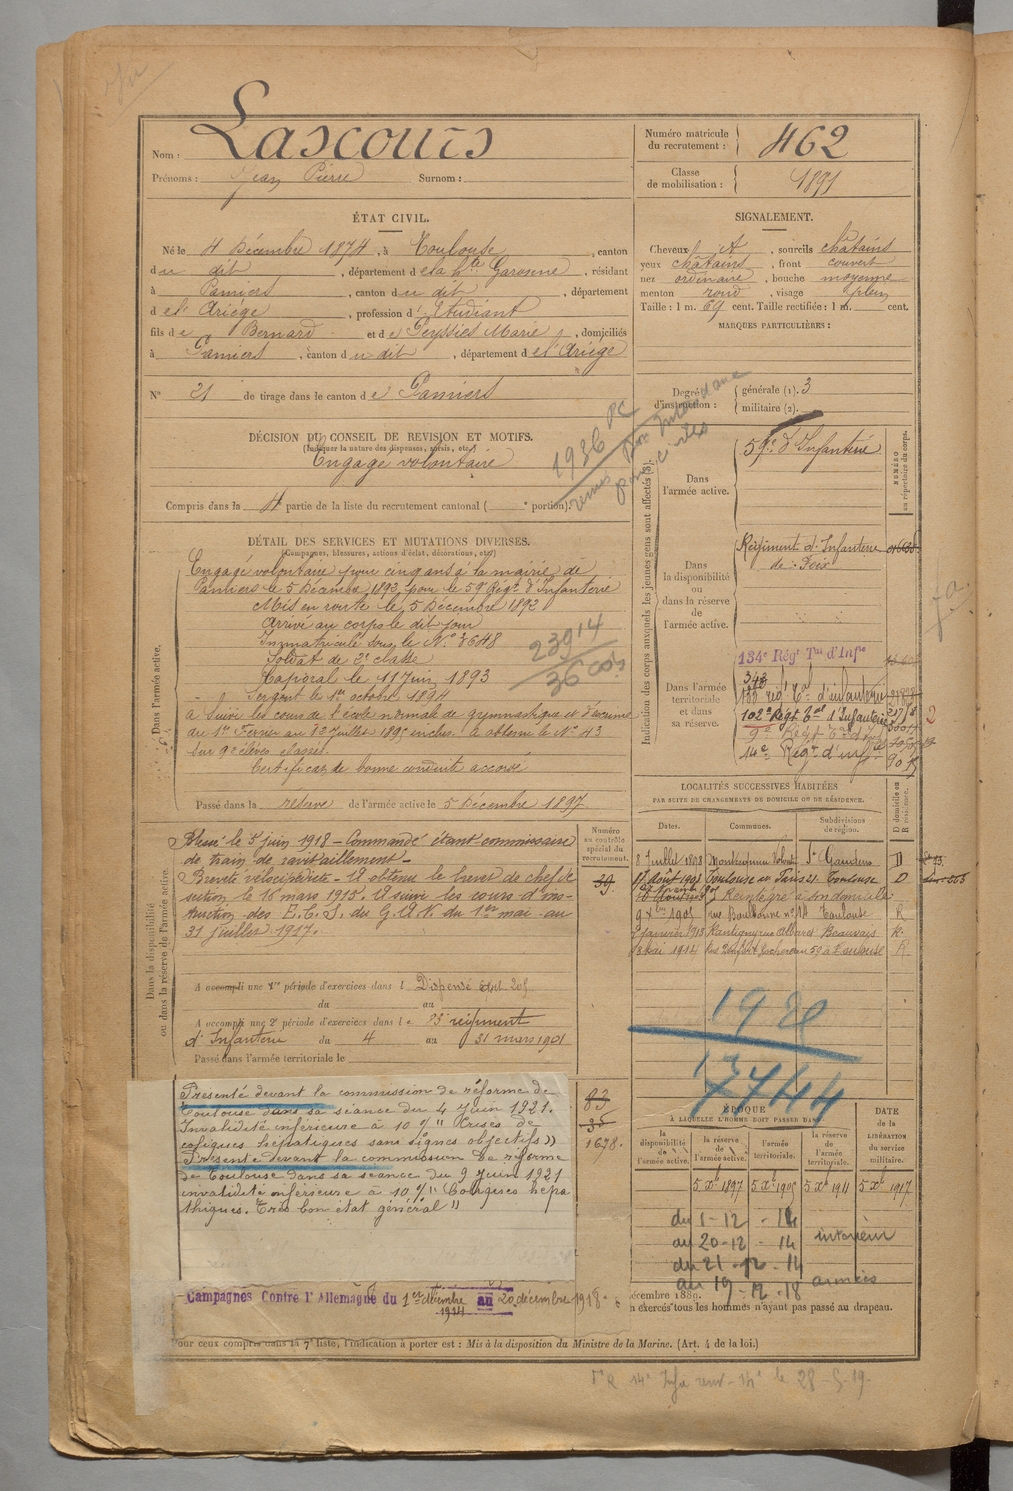 Nom : Lascours
Prénoms : Jean Pierre Surnom :
Numéro matricule du recrutement : 462
Classe de mobilisation : 1891
ÉTAT CIVIL.
Né le 4 Décembre 1874, à Toulouse, canton
du dit, département de la Hte Garonne, résidant
à Pamiers, canton du dit, département
de l'Ariège, profession d'Etudiant
fils de Bernard et de Peyssies Marie, domiciliés
à Pamiers, canton du dit, département de l'Ariège
SIGNALEMENT.
Cheveux , sourcils châtains
yeux châtains, front couvert
nez ordinaire, bouche moyenne
menton rond, visage plein
Taille : 1 m. 69 cent. Taille rectifiée : 1 m. cent.
MARQUES PARTICULIÈRES :
N° 21 de tirage dans le canton de Pamiers
Degré d'instruction : générale (1). 3
militaire (2).
DÉCISION DU CONSEIL DE REVISION ET MOTIFS.
(Indiquer la nature des dispenses, sursis, etc.)
Engagé volontaire
Compris dans la 4 partie de la liste du recrutement cantonal ( e portion).
1936 PC
DÉTAIL DES SERVICES ET MUTATIONS DIVERSES.
(Campagnes, blessures, actions d'éclat, décorations, etc.)
Dans l'armée active.
Engagé volontaire pour cinq ans à la mairie de
Pamiers le 5 Décembre 1892 pour le 59e Régt d'Infanterie
Mis en route le 5 Décembre 1892
Arrivé au corps le dit jour
Immatriculé sous le N° 3648
Soldat de 2e classe
Caporal le 11 Juin 1893
Sergent le 1er octobre 1894
a suivi les cours de l'école normale de gymnastique et d'escrime
du 1er Février au 31 Juillet 1895 inclus. A obtenu le N° 43
sur 92 élèves classés.
Certificat de bonne conduite accordé
Passé dans la réserve de l'armée active le 5 Décembre 1897
23914
Indication des corps auxquels les jeunes gens sont affectés (3).
NUMÉRO au répertoire du corps.
Dans l'armée active.
59e d'Infanterie
Dans la disponibilité ou dans la réserve de l'armée active.
Régiment d'Infanterie
de Foix
Dans l'armée territoriale et dans sa réserve.
134e Régt Tal d'Infie
133 régt Tal d'infanterie
102e Régt Tal d'Infanterie
9e Régt Tal d'Inf
14e Régt d'infie
LOCALITÉS SUCCESSIVES HABITÉES
PAR SUITE DE CHANGEMENTS DE DOMICILE OU DE RÉSIDENCE.
Dates. Communes. Subdivisions de région. D domicile ou R résidence.
8 Juillet 1898 Montesquieu Volvestre St Gaudens D
Toulouse D
Réintégré à son domicile
9 Xbre 1905 rue Boulbonne n° 14 Toulouse R
Janvier 1913 Beauvais R.
18 Mai 1914 Toulouse R.
Dans la disponibilité ou dans la réserve de l'armée active.
Numéro au contrôle spécial du recrutement.
39.
Blessé le 5 juin 1918 – Commandé étant commissaire
de train de ravitaillement –
Breveté vélocipédiste – A obtenu le brevet de chef de
section le 16 mars 1915. A suivi les cours d'ins-
truction des E.T.S. du G.A.N. du 1er mai au
31 juillet 1917.
A accompli une 1re période d'exercices dans l Dispensé
du au
A accompli une 2e période d'exercices dans le 83e régiment
d'Infanterie du 4 au 31 mars 1901
Passé dans l'armée territoriale le
Présenté devant la commission de réforme de
Toulouse dans sa séance du 4 Juin 1921.
Invalidité inférieure à 10 % "Crises de
coliques hépatiques sans signes objectifs"
Présenté devant la commission de réforme
de Toulouse dans sa séance du 9 Juin 1921
invalidité inférieure à 10 % "Coliques hépa
thiques. Très bon état général"
83
35
1678.
1920
17744
ÉPOQUE À LAQUELLE L'HOMME DOIT PASSER DANS
DATE DE LA LIBÉRATION du service militaire.
la disponibilité de l'armée active. la réserve de l'armée active. l'armée territoriale. la réserve de l'armée territoriale.
5 Xe 1897 5 Xe 1905 5 Xe 1911 5 Xe 1917
du 1-12-14
au 20-12-14 intérieur
du 21-12-14
au 19-12-18 armées
Campagnes Contre l'Allemagne du 1er décembre 1914 au 20 décembre 1918.
décembre 1889.
n exercés tous les hommes n'ayant pas passé au drapeau.
Pour ceux compris dans la 7e liste, l'indication à porter est : Mis à la disposition du Ministre de la Marine. (Art. 4 de la loi.)